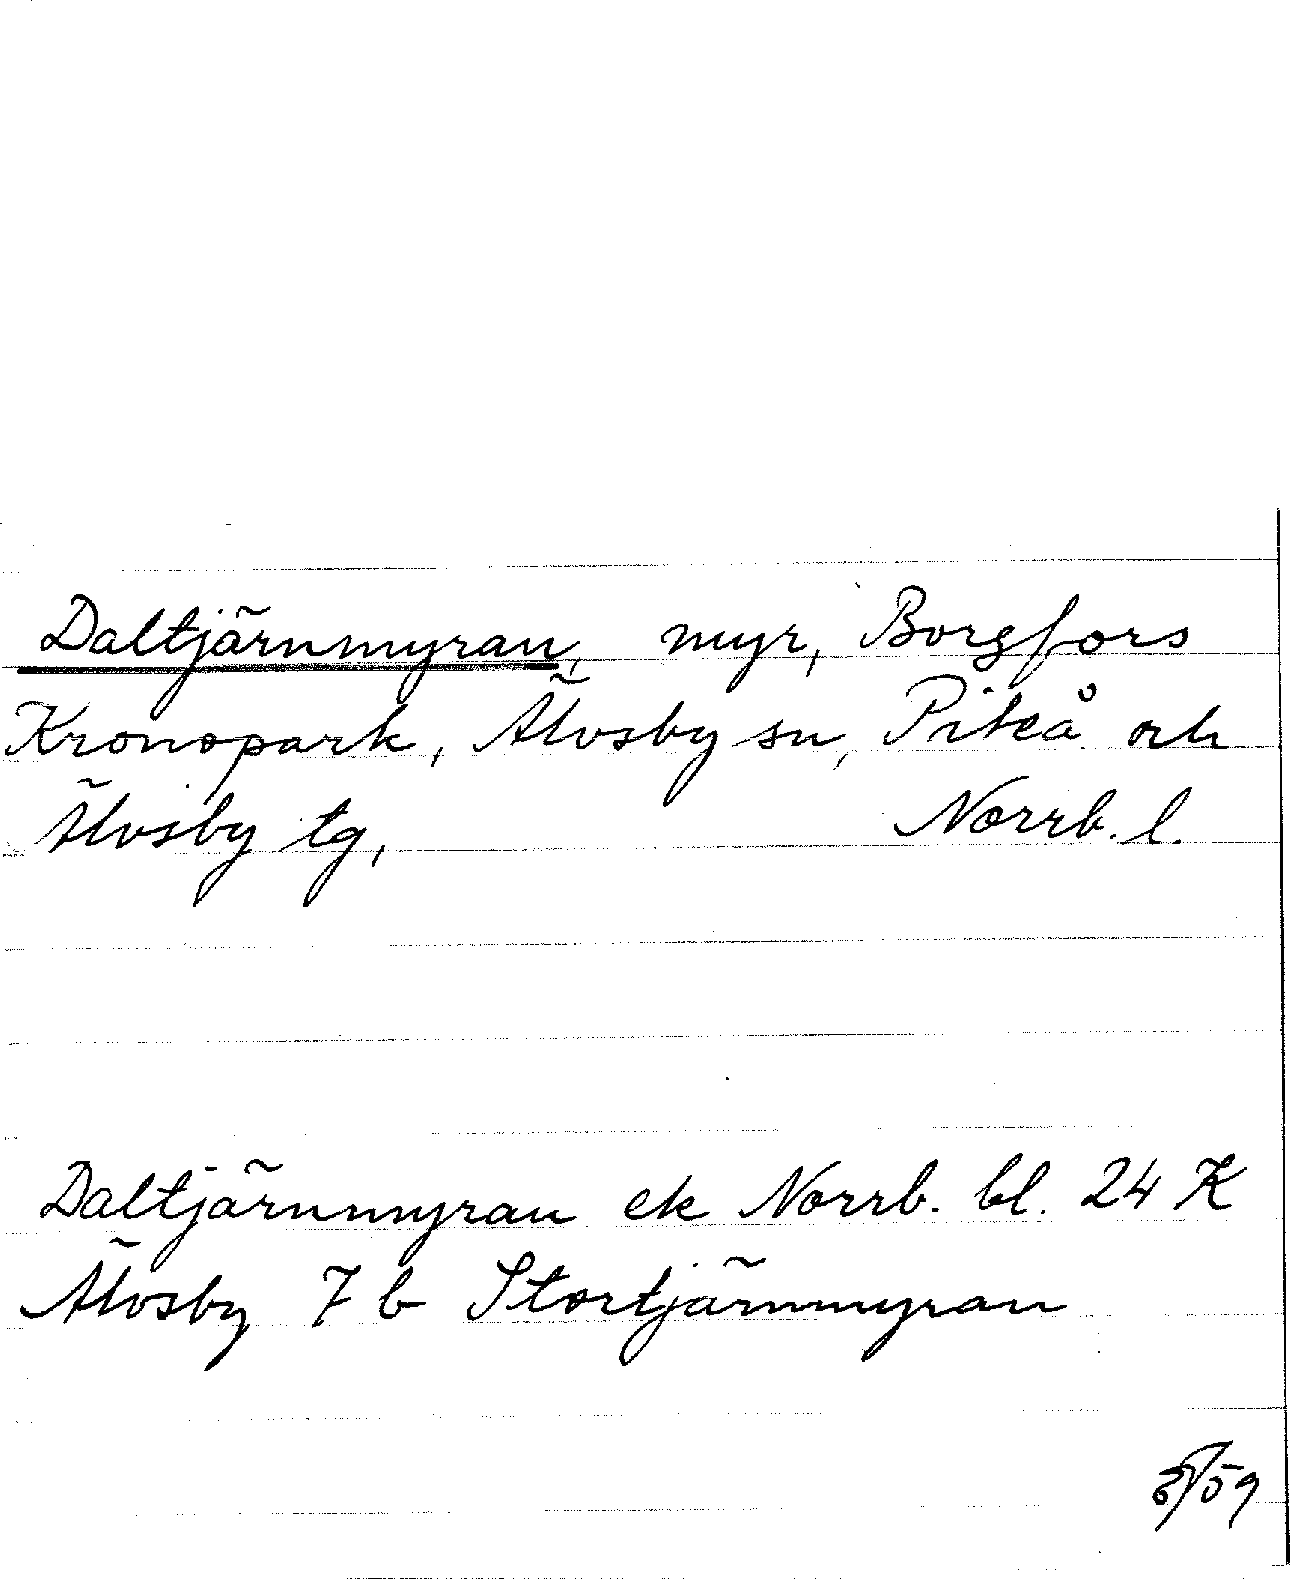 Daltjärnmyran, myr, Borgfors
Kronopark, Älvsby sn, Piteå och
Älvsby tg, Norrb. l.
Daltjärnmyran ek Norrb. bl. 24 K
Älvsby 7 b Stortjärnmyran